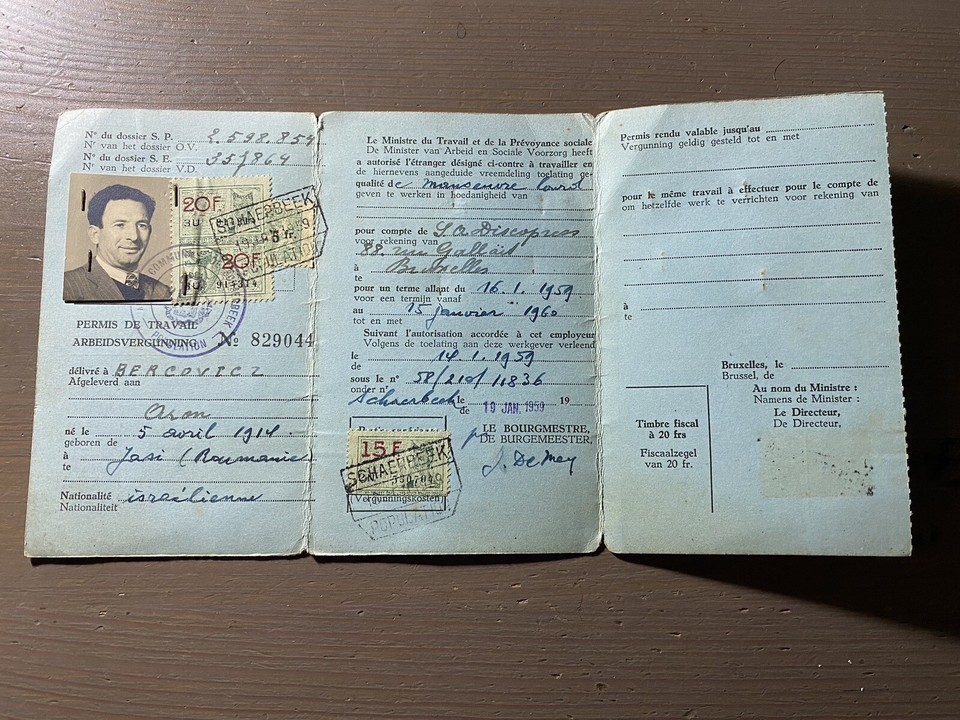 N° du dossier S. P. 2.598.854
N° van het dossier O.V.
N° du dossier S. E. 357864
N° van het dossier V.D.
20F
20F
SCHAERBEEK
POPULATION
PERMIS DE TRAVAIL
ARBEIDSVERGUNNING N° 829044
délivré à BERCOVICI
Afgeleverd aan
Aron
né le 5 avril 1914
geboren de
à Jasi (Roumanie)
te
Nationalité israélienne
Nationaliteit
Le Ministre du Travail et de la Prévoyance sociale
De Minister van Arbeid en Sociale Voorzorg heeft
a autorisé l'étranger désigné ci-contre à travailler en
de hiernevens aangeduide vreemdeling toelating ge-
qualité de manoeuvre lourd
geven te werken in hoedanigheid van
pour compte de S.A. Discopress
voor rekening van
88, rue Gallait
à Bruxelles
te
pour un terme allant du 16.1.1959
voor een termijn vanaf
au 15 janvier 1960
tot en met
Suivant l'autorisation accordée à cet employeur
Volgens de toelating aan deze werkgever verleend
le 14.1.1959
de
sous le n° 58/210/11836
onder n°
Schaerbeek le 19 JAN. 1959 19
de
LE BOURGMESTRE,
DE BURGEMEESTER,
J. De Mey
15 F
SCHAERBEEK
(Vergunningskosten)
POPULATION
Permis rendu valable jusqu'au
Vergunning geldig gesteld tot en met
pour le même travail à effectuer pour le compte de
om hetzelfde werk te verrichten voor rekening van
à
te
Bruxelles, le
Brussel, de
Au nom du Ministre :
Namens de Minister :
Le Directeur,
De Directeur,
Timbre fiscal
à 20 frs
Fiscaalzegel
van 20 fr.